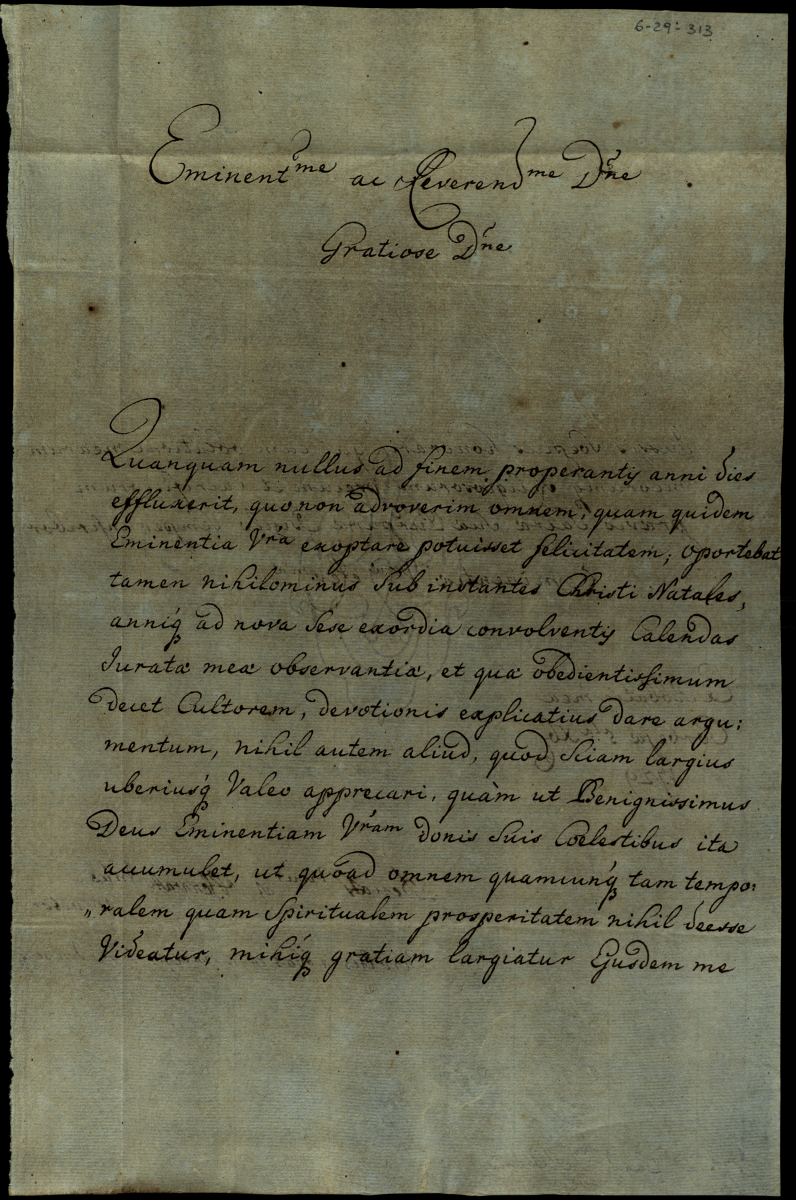 6-29-313
Eminent.me ac Reverend.me Dne
Gratiose Dne
Quanquam nullus ad finem properantis anni dies
effluxerit, quo non advoverim omnem, quam quidem
Eminentia Vra exoptare potuisset felicitatem; oportebat
tamen nihilominus sub instantes Christi Natales,
anniq; ad nova sese exordia convolventis Calendas
Iuratæ meæ observantiæ, et quæ obedientissimum
decet Cultorem, devotionis explicatius dare argu:
mentum, nihil autem aliud, quod sciam largius
uberiusq; Valeo apprecari, quàm ut Benignissimus
Deus Eminentiam Vram donis suis Coelestibus ita
accumulet, ut quoad omnem quamcunq; tam tempo:
"ralem quam Spiritualem prosperitatem nihil deesse
Videatur, mihiq; gratiam largiatur Ejusdem me